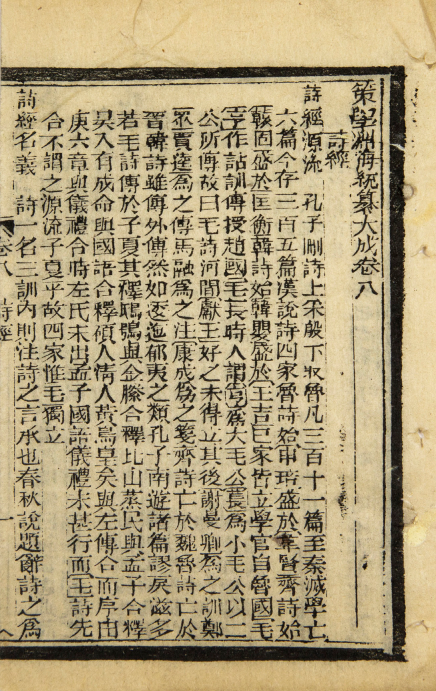 策學淵海統纂大成卷八
詩經
詩經源流 孔子刪詩上采殷下取魯凡三百十一篇至秦滅學亡
六篇今存三百五篇漢說詩四家魯詩始申培盛於韋賢齊詩始
轅固盛於匡衡韓詩始韓嬰盛於王吉三家皆立學官自魯國毛
亨作詁訓傳授趙國毛萇時人謂亨爲大毛公萇爲小毛公以二
公所傳故曰毛詩河間獻王好之未得立其後謝曼卿爲之訓鄭
眾賈逵爲之傳馬融爲之注康成爲之箋齊詩亡於魏魯詩亡於
晉韓詩雖傳外傳然如逶迤郁夷之類孔子南遊諸篇謬戾滋多
若毛詩傳於子夏其釋鴟鴞與金縢合釋北山蒸民與孟子合釋
昊天有成命與國語合釋碩人清人黃鳥皇矣與左傳合而序由
庚六章與儀禮合時左氏未出孟子國語儀禮未甚行而毛詩先
合不謂之源流子夏乎故四家惟毛獨立
詩經名義 詩一名三訓內則注詩之言承也春秋說題辭詩之爲
卷八 詩經 一